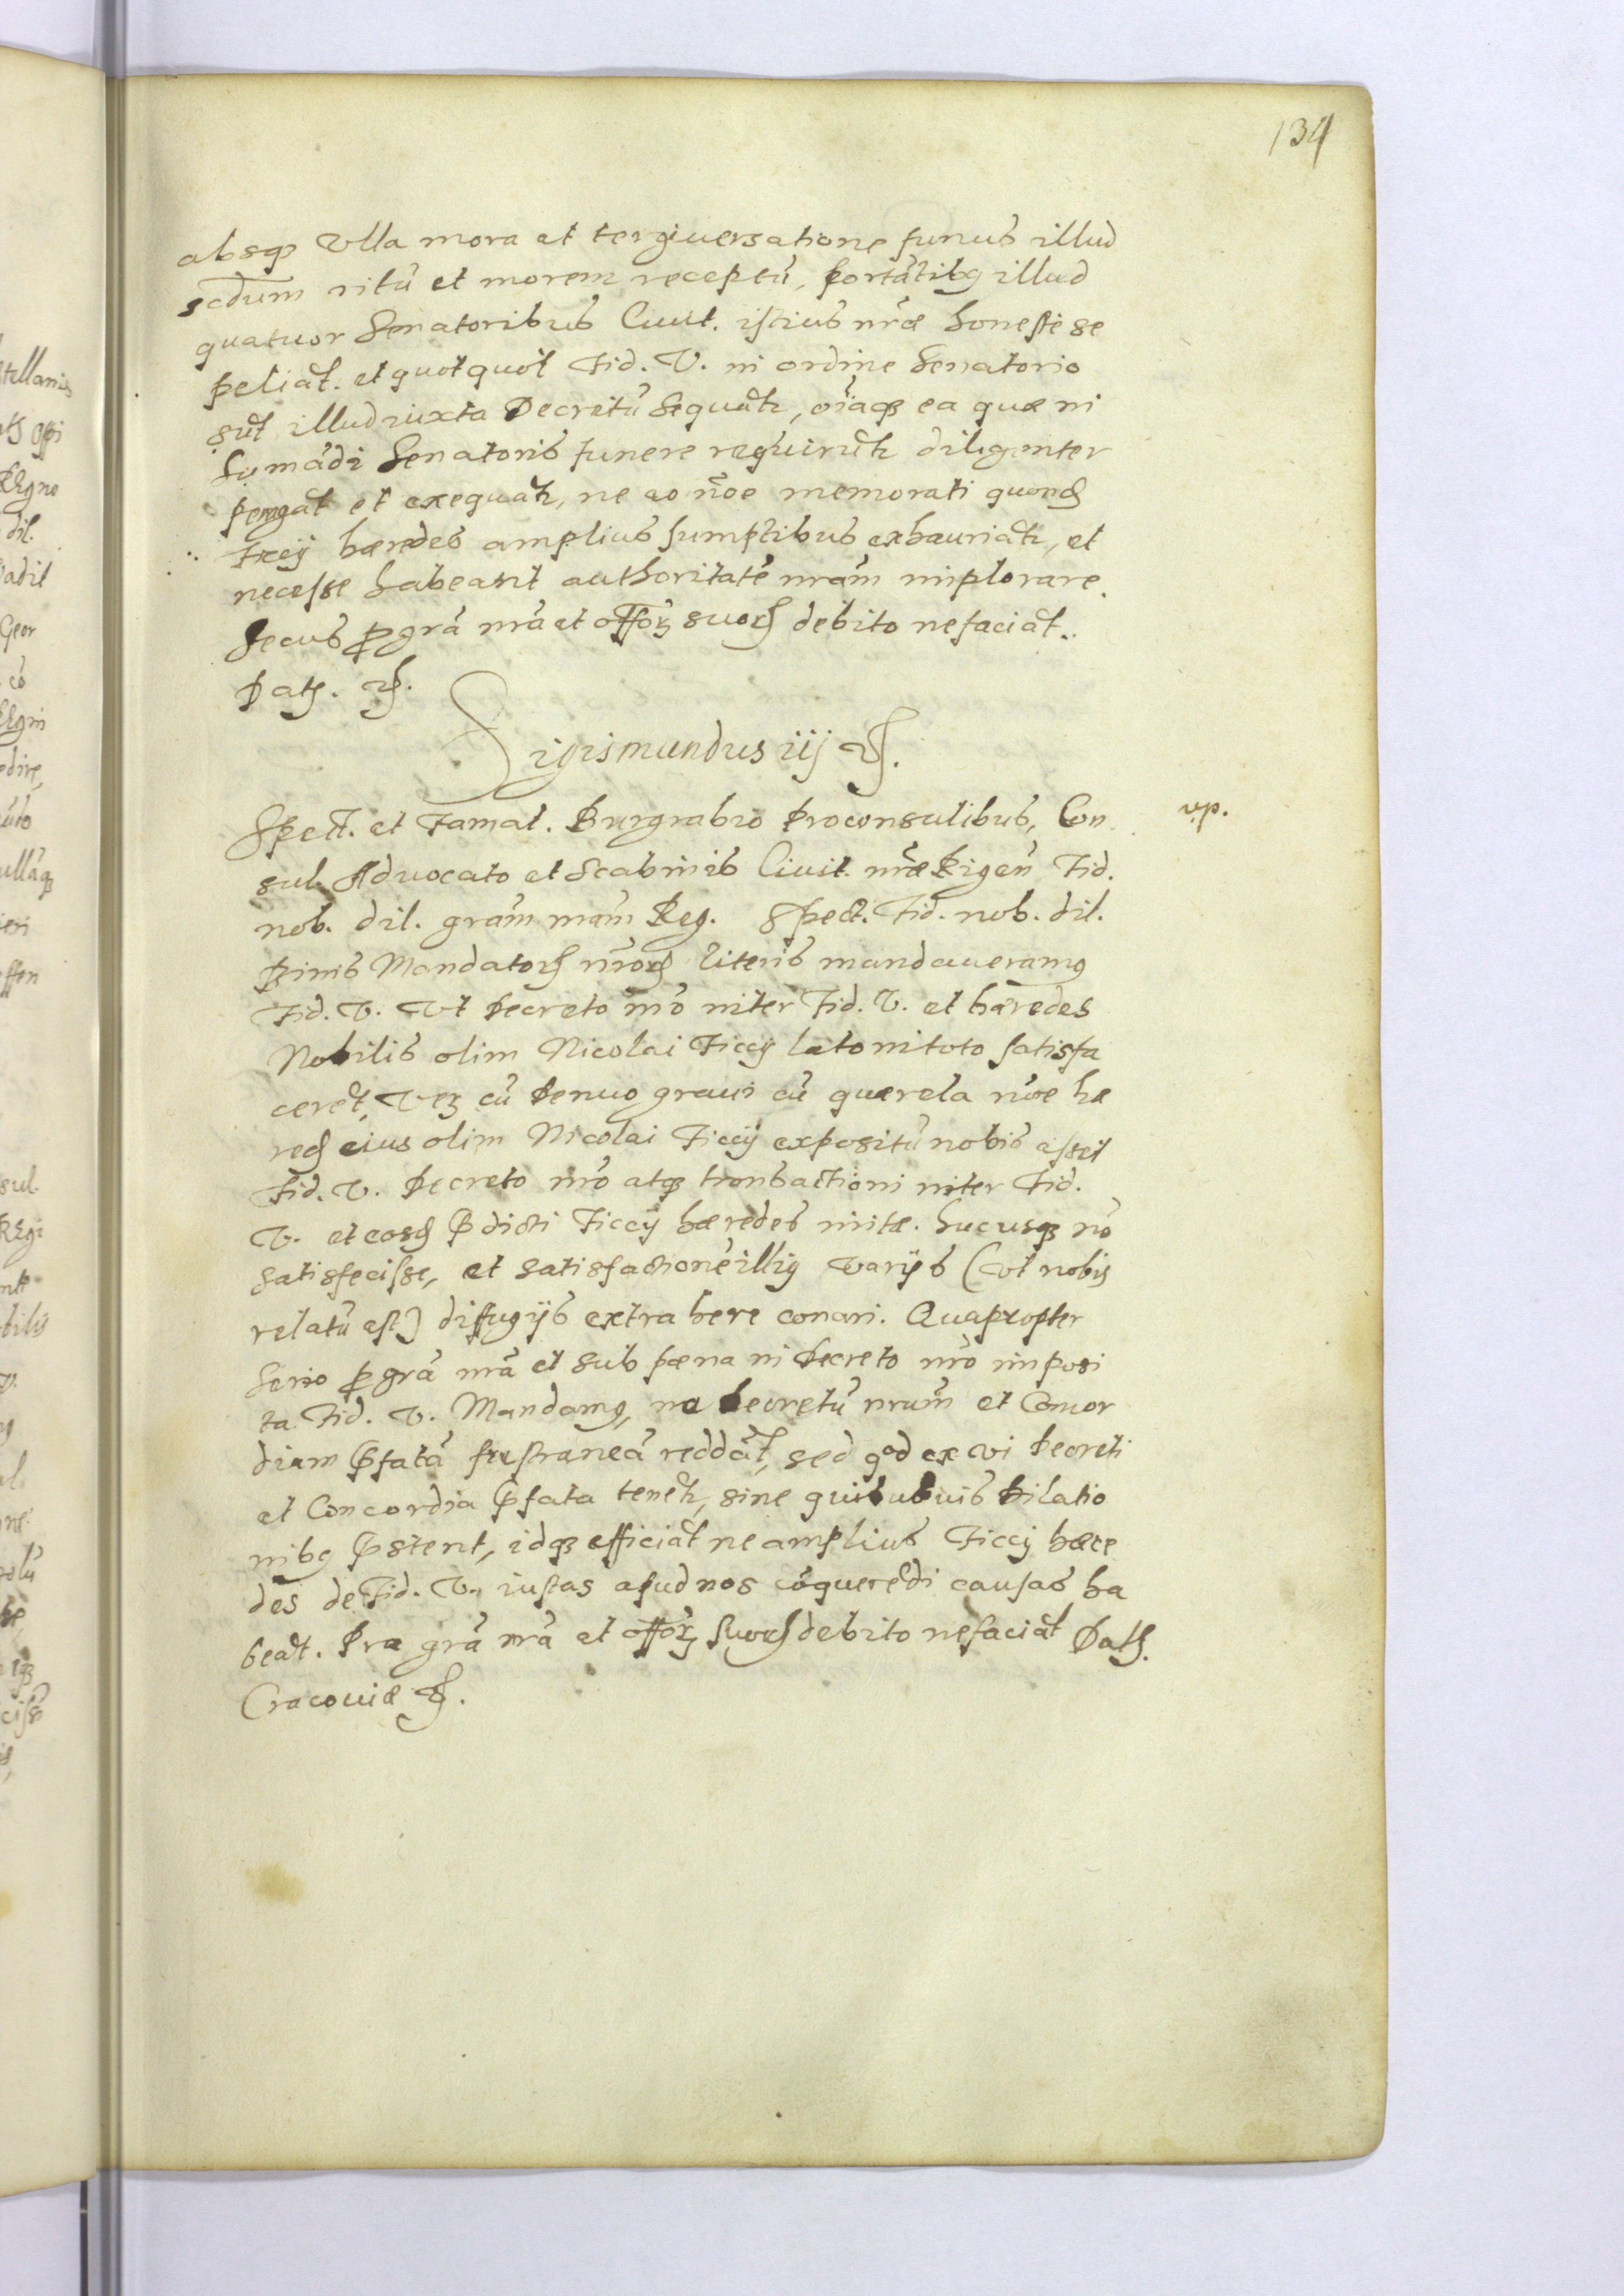 134
absq Vlla mora et tergiuersatione funus illud
scdum ritū et morem receptū, portātibg illud
quatuor Senatoribus Ciuit. istius nrāe honeste se
peliāt. et quotquot Fid. V. in ordine Senatorio
sūt illud iuxta Decretū Sequāt, oīaq ea quæ in
humādi Senatoris funere requirūt diligenter
peragāt et exequāt, ne eo nōe memorati quond
Ficcij hæredes amplius sumptibus exhauriāt, et
necesse habeant authoritatē nrām implorare.
Secus p grā nrā et off suor debito ne faciāt.
Dat.
Sigismundus iij
Spect. et Famat. Burgrabio Proconsulibus, Con
sul. Aduocato et Scabinis Ciuit. nrāe Rigen̄ Fid.
nob. dil. grām nrām Reg. Spect. Fid. nob. dil.
Binis Mandator nrōr literis mandaueramg
Fid. V. Vt Decreto nrō inter Fid. V. et hæredes
Nobilis olim Nicolai Ficcij lato in toto satisfa
cerēt, Ver cū Denuo graui cū quærela nōe hæ
red eius olim Nicolai Ficcij expositū nobis esset
Fid. V. Decreto nrō atq transactioni inter Fid.
V. et eosd pdicti Ficcij hæredes initæ. hucusq nō
satisfecisse, et satisfactionē illig varijs (vt nobis
relatū est) diffugijs extrahere conari. Quapropter
Serio p grā nrā et sub pæna in Decreto nrō imposi
ta Fid. V. Mandamg, ne Decretū nrum̄ et Concor
diam pfatā frustraneā reddāt, sed qod ex vi Decreti
et Concordia pfata tenēt, sine quibusuis Dilatio
nibg pstent, idq efficiāt ne amplius Ficcij hære
des de Fid. V. iustas apud nos cōquerēdi causas ha
beāt. Pro grā nrā et off suor debito ne faciāt Dat.
Cracouiæ
v.p.